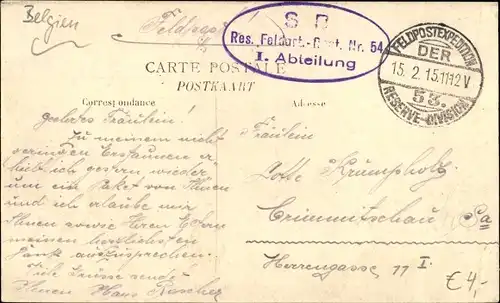 Belgien
Feldpost
S B
Res. Feldart.-Regt. Nr. 54
I. Abteilung
FELDPOSTEXPEDITION
DER
15. 2. 15. 11-12 V
53.
RESERVE-DIVISION
CARTE POSTALE
POSTKAART
Correspondance
Adresse
Geehrtes Fräulein!
Zu meinem nicht
geringen Erstaunen er
hielt ich gestern wieder
um ein Paket von Ihnen
und ich erlaube mir
Ihnen sowie Ihren Eltern
meinen herzlichsten
Dank auszusprechen.
Viele Grüsse sendet
Ihnen Hans Rascher
Fräulein
Lotte Krumpholz
Crimmitschau Sa
Herrengasse 11 I.
€ 4,-